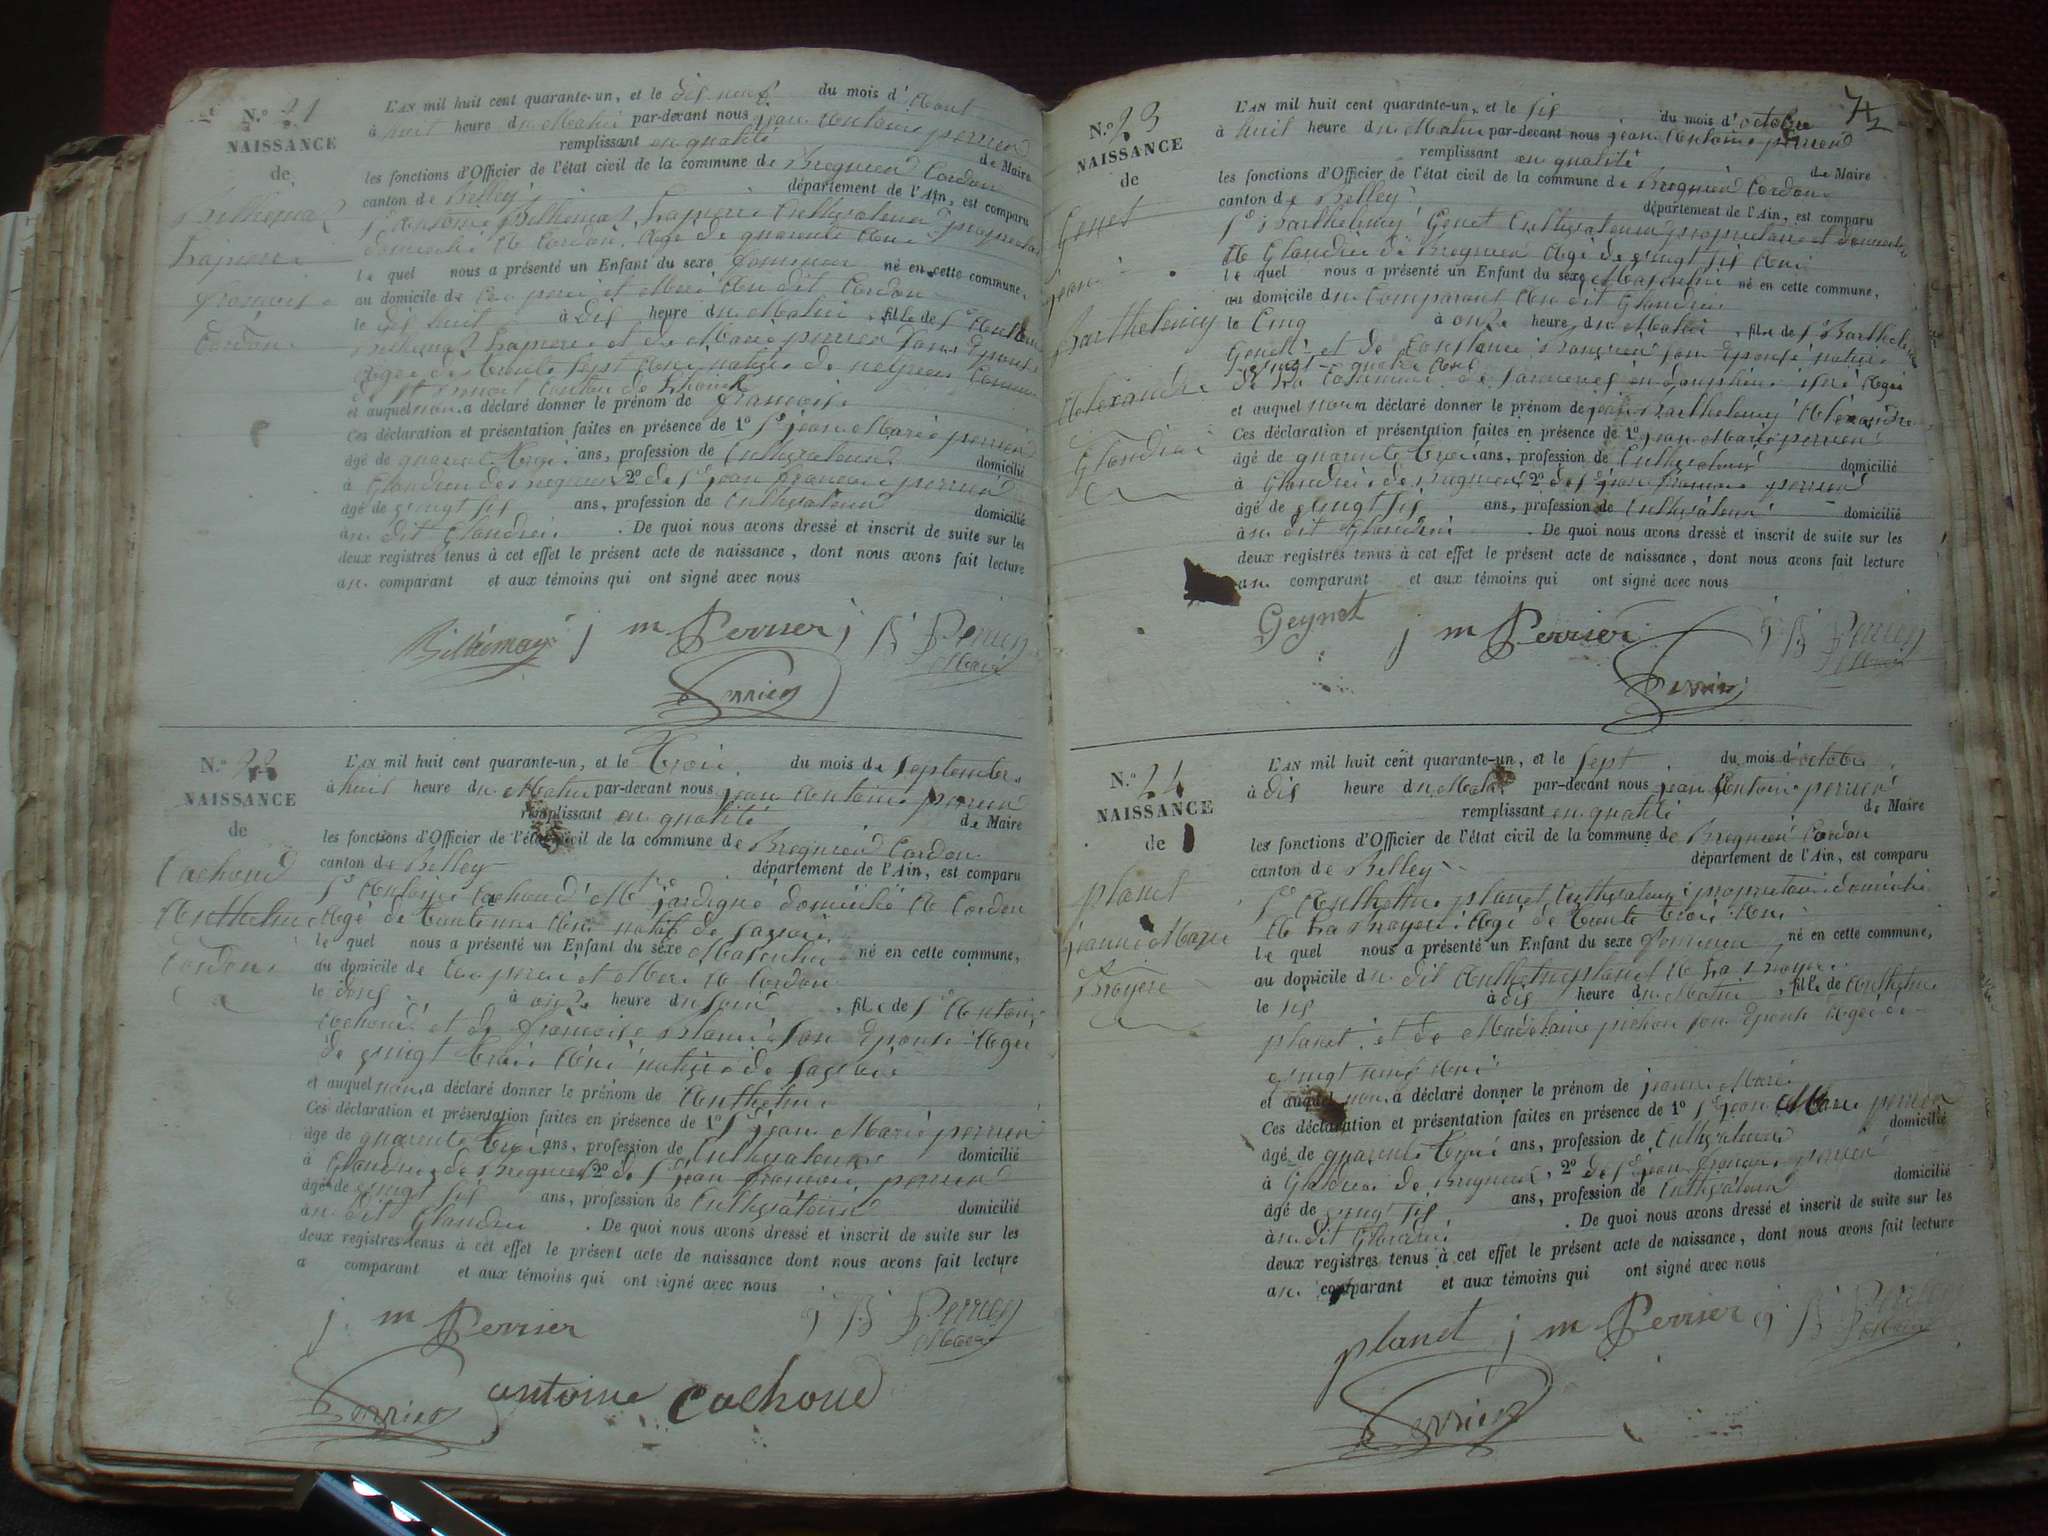 N.o 21
NAISSANCE
de
Bilhemas
Lapierre
françoise
Cordon
L'AN mil huit cent quarante-un, et le dix neuf du mois d'Aout
à huit heure du Matin par-devant nous jean Antoine perrier
remplissant en qualité de Maire
les fonctions d'Officier de l'état civil de la commune de Bregnier Cordon
canton de Belley département de l'Ain, est comparu
Sr Antoine
domicilié à Cordon. Agé de quarante Ans
le quel nous a présenté un Enfant du sexe feminin né en cette commune,
au domicile de père et Mère Au dit Cordon
le dix huit à dix heure du Matin, fille de Sr
Lapierre et de Marie perrier son Epouse
Agée de trente sept Ans native de
et auquel nous a déclaré donner le prénom de françoise
Ces déclaration et présentation faites en présence de 1o Sr jean Marie perrier
âgé de quarente trois ans, profession de Cultivateur domicilié
à Glandieu de Bregnier 2o de Sr jean françois perrier
âgé de vingt six ans, profession de Cultivateur domicilié
au dit Glandieu. De quoi nous avons dressé et inscrit de suite sur les
deux registres tenus à cet effet le présent acte de naissance, dont nous avons fait lecture
au comparant et aux témoins qui ont signé avec nous
j m Perrier
Perrier
Maire
Perrier
N.o 22
NAISSANCE
de
Cachoud
Anthelme
Cordon
L'AN mil huit cent quarante-un, et le trois du mois de septembre
à huit heure du Matin par-devant nous jean Antoine perrier
remplissant en qualité de Maire
les fonctions d'Officier de l'état civil de la commune de Bregnier Cordon
canton de Belley département de l'Ain, est comparu
Sr Antoine Cachoud domicilié à Cordon
Agé de trente Ans natif de
le quel nous a présenté un Enfant du sexe Masculin né en cette commune,
au domicile de père et Mère à Cordon
le à onze heure du soir, fils de Sr Antoine
Cachoud et de françoise son Epouse Agée
de vingt trois Ans native de
et auquel nous a déclaré donner le prénom de Anthelme
Ces déclaration et présentation faites en présence de 1o Sr jean Marie perrier
âgé de quarente trois ans, profession de Cultivateur domicilié
à Glandieu de Bregnier 2o de Sr jean françois perrier
âgé de vingt six ans, profession de Cultivateur domicilié
au dit Glandieu. De quoi nous avons dressé et inscrit de suite sur les
deux registres tenus à cet effet le présent acte de naissance dont nous avons fait lecture
a comparant et aux témoins qui ont signé avec nous
j. m Perrier
Perrier
Maire
Perrier
antoine Cachoud
N.o 23
NAISSANCE
de
Genet
jean
Barthelemy
Alexandre
Glandieu
L'AN mil huit cent quarante-un, et le six du mois d'octobre
à huit heure du Matin par-devant nous jean Antoine perrier
remplissant en qualité de Maire
les fonctions d'Officier de l'état civil de la commune de Bregnier Cordon
canton de Belley département de l'Ain, est comparu
Sr Barthelemy Genet Cultivateur propriétaire et domicilié
à Glandieu de Bregnier Agé de vingt six Ans
le quel nous a présenté un Enfant du sexe Masculin né en cette commune,
au domicile du Comparant Au dit Glandieu
le Cinq à onze heure du Matin, fils de Sr Barthelemy
Genet et de Constance son Epouse native
vingt-quatre Ans
de la Commune de en Dauphiné Agée
et auquel nous a déclaré donner le prénom de jean Barthelemy Alexandre
Ces déclaration et présentation faites en présence de 1o jean Marie perrier
âgé de quarente trois ans, profession de Cultivateur domicilié
à Glandieu de Bregnier 2o de Sr jean françois perrier
âgé de vingt six ans, profession de Cultivateur domicilié
au dit Glandieu. De quoi nous avons dressé et inscrit de suite sur les
deux registres tenus à cet effet le présent acte de naissance, dont nous avons fait lecture
au comparant et aux témoins qui ont signé avec nous
Geynet j m Perrier
Perrier
Maire
Perrier
N.o 24
NAISSANCE
de
planet
jeanne Marie
Broyere
L'AN mil huit cent quarante-un, et le sept du mois d'octobre
à dix heure du Matin par-devant nous jean Antoine perrier
remplissant en qualité de Maire
les fonctions d'Officier de l'état civil de la commune de Bregnier Cordon
canton de Belley département de l'Ain, est comparu
Sr Anthelme planet Cultivateur propriétaire domicilié
à La Broyere Agé de trente trois Ans
le quel nous a présenté un Enfant du sexe feminin né en cette commune,
au domicile du dit Anthelme planet à La Broyere
le six à dix heure du Matin, fille de Anthelme
planet et de Madelaine pichon son Epouse Agée de
vingt neuf Ans
et auquel nous a déclaré donner le prénom de jeanne Marie
Ces déclaration et présentation faites en présence de 1o Sr jean Marie perrier
âgé de quarente trois ans, profession de Cultivateur domicilié
à Glandieu de Bregnier, 2o de Sr jean françois perrier
âgé de vingt six ans, profession de Cultivateur domicilié
au dit Glandieu. De quoi nous avons dressé et inscrit de suite sur les
deux registres tenus à cet effet le présent acte de naissance, dont nous avons fait lecture
au comparant et aux témoins qui ont signé avec nous
planet j m Perrier
Perrier
Perrier